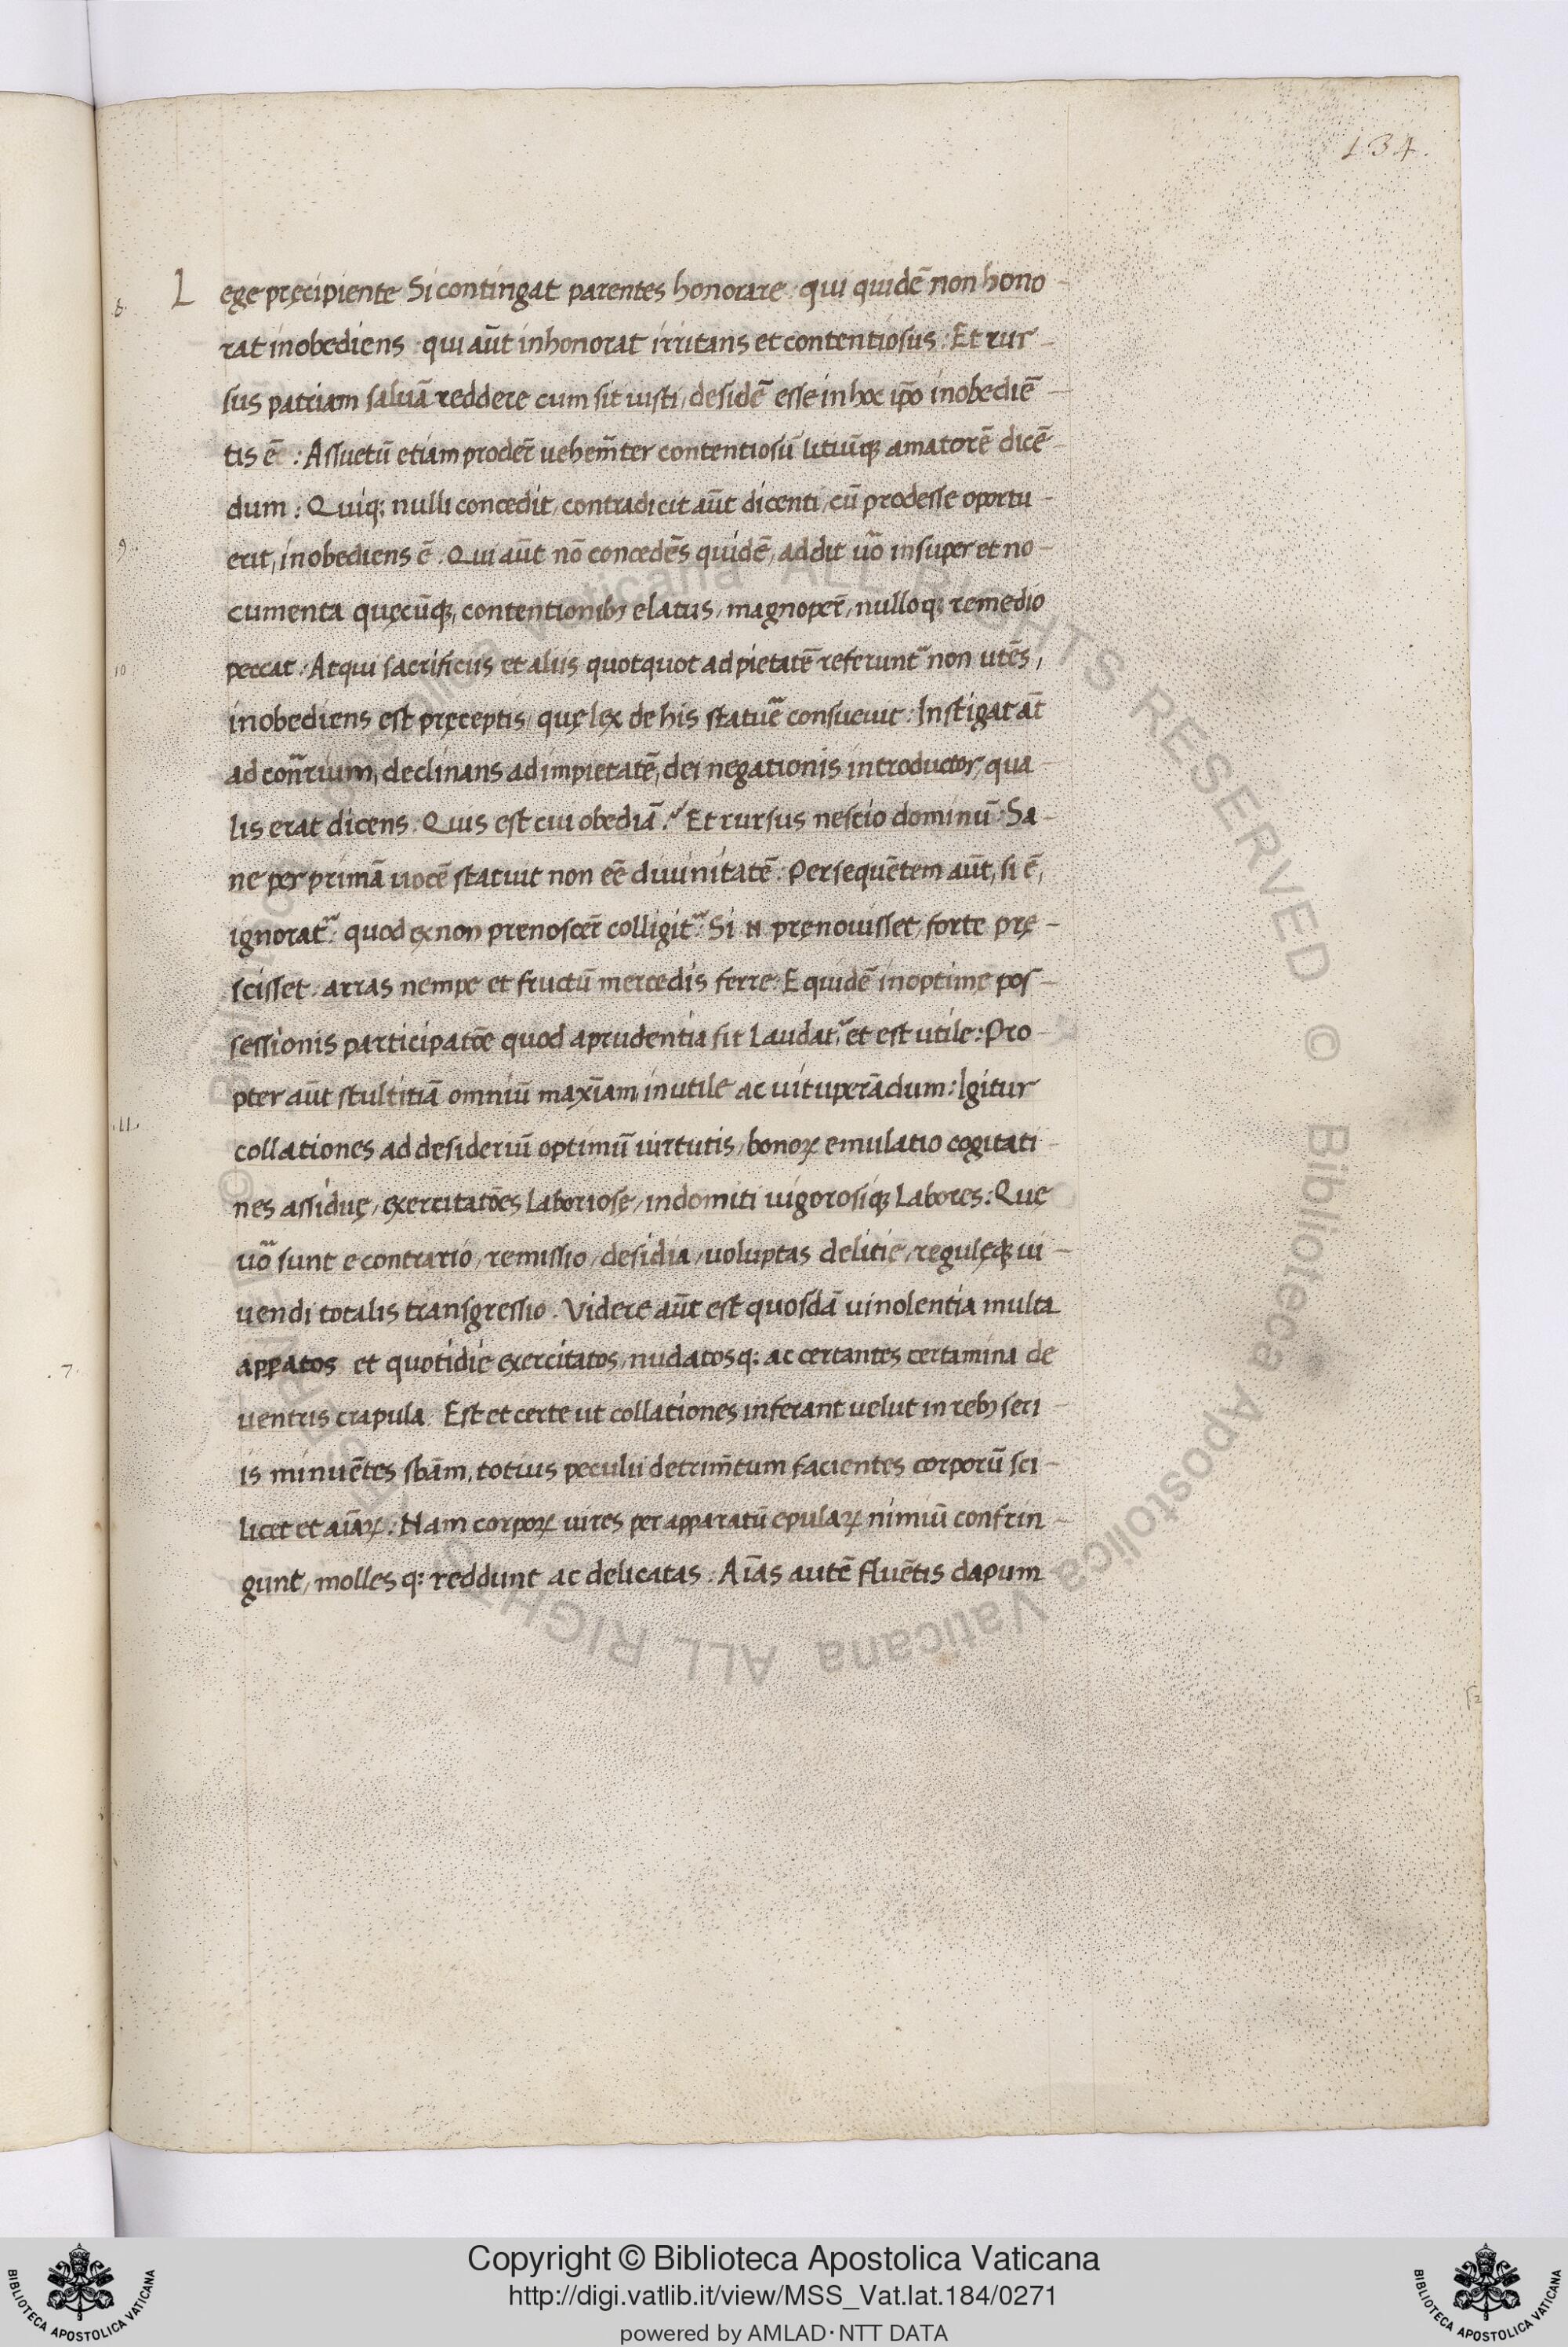 134.
8. Lege pręcipiente Si contingat parentes honorare. qui quidē non hono-
rat inobediens. qui aūt inhonorat irritans et contentiosus: Et rur-
sus patriam saluā reddere cum sit iusti, desidē esse in hoc ip̄o inobediē-
tis ē: Assuetū etiam proder̄ uehem̄ter contentiosū litiūq; amatorē dicē-
dum: Quiq; nulli concedit, contradicit aūt dicenti, cū prodesse oportu-
9. erit, inobediens ē. Qui aūt nō concedēs quidē, addit uō insuper et no-
cumenta quęcūq; contentionib; elatus, magnoper̄, nulloq; remedio
10 peccat: Atqui sacrificiis et aliis quotquot ad pietatē referunt᷑ non utēs,
inobediens est pręceptis, quę lex de his statuē consueuit: Instigat at̄
ad con̄rium, declinans ad impietatē, dei negationis introductor, qua-
lis erat dicens. Quis est cui obediā? Et rursus nescio dominū: Sa-
ne per primā uocē statuit non eē diuinitatē: Per sequētem aūt, si ē,
ignorat᷑ quod ex non prenoscer̄ colligit᷑: Si n̄ pręnouisset, forte prę-
scisset. arras nempe et fructū mercedis ferre: Equidē in optimę pos-
sessionis participatōe quod a prudentia fit Laudat᷑, et est utile: Pro-
pter aūt stultitiā omniū maxīam, inutile ac uituperādum: Igitur
.11. collationes ad desideriū optimū uirtutis, bonoꝝ emulatio cogitati-
nes assiduę, exercitatōes Laboriosę, indomiti uigorosiq; Labores: Quę
uō sunt e contrario, remissio, desidia, uoluptas delitię, regulęq; ui-
uendi totalis transgressio. Videre aūt est quosdā uinolentia multa
.7. apꝑatos et quotidie exercitatos, nudatosq: ac certantes certamina de
uentris crapula. Est et certe ut collationes inferant uelut in reb; seri-
is minuētes sbām, totius peculii detrim̄tum facientes corporū sci-
licet et aīaꝝ: Nam corpoꝝ uires per apparatū epulaꝝ nimiū confrin-
gunt, molles q: reddunt ac delicatas. Aīas autē fluētis dapum
Copyright © Biblioteca Apostolica Vaticana
http://digi.vatlib.it/view/MSS_Vat.lat.184/0271
powered by AMLAD·NTT DATA